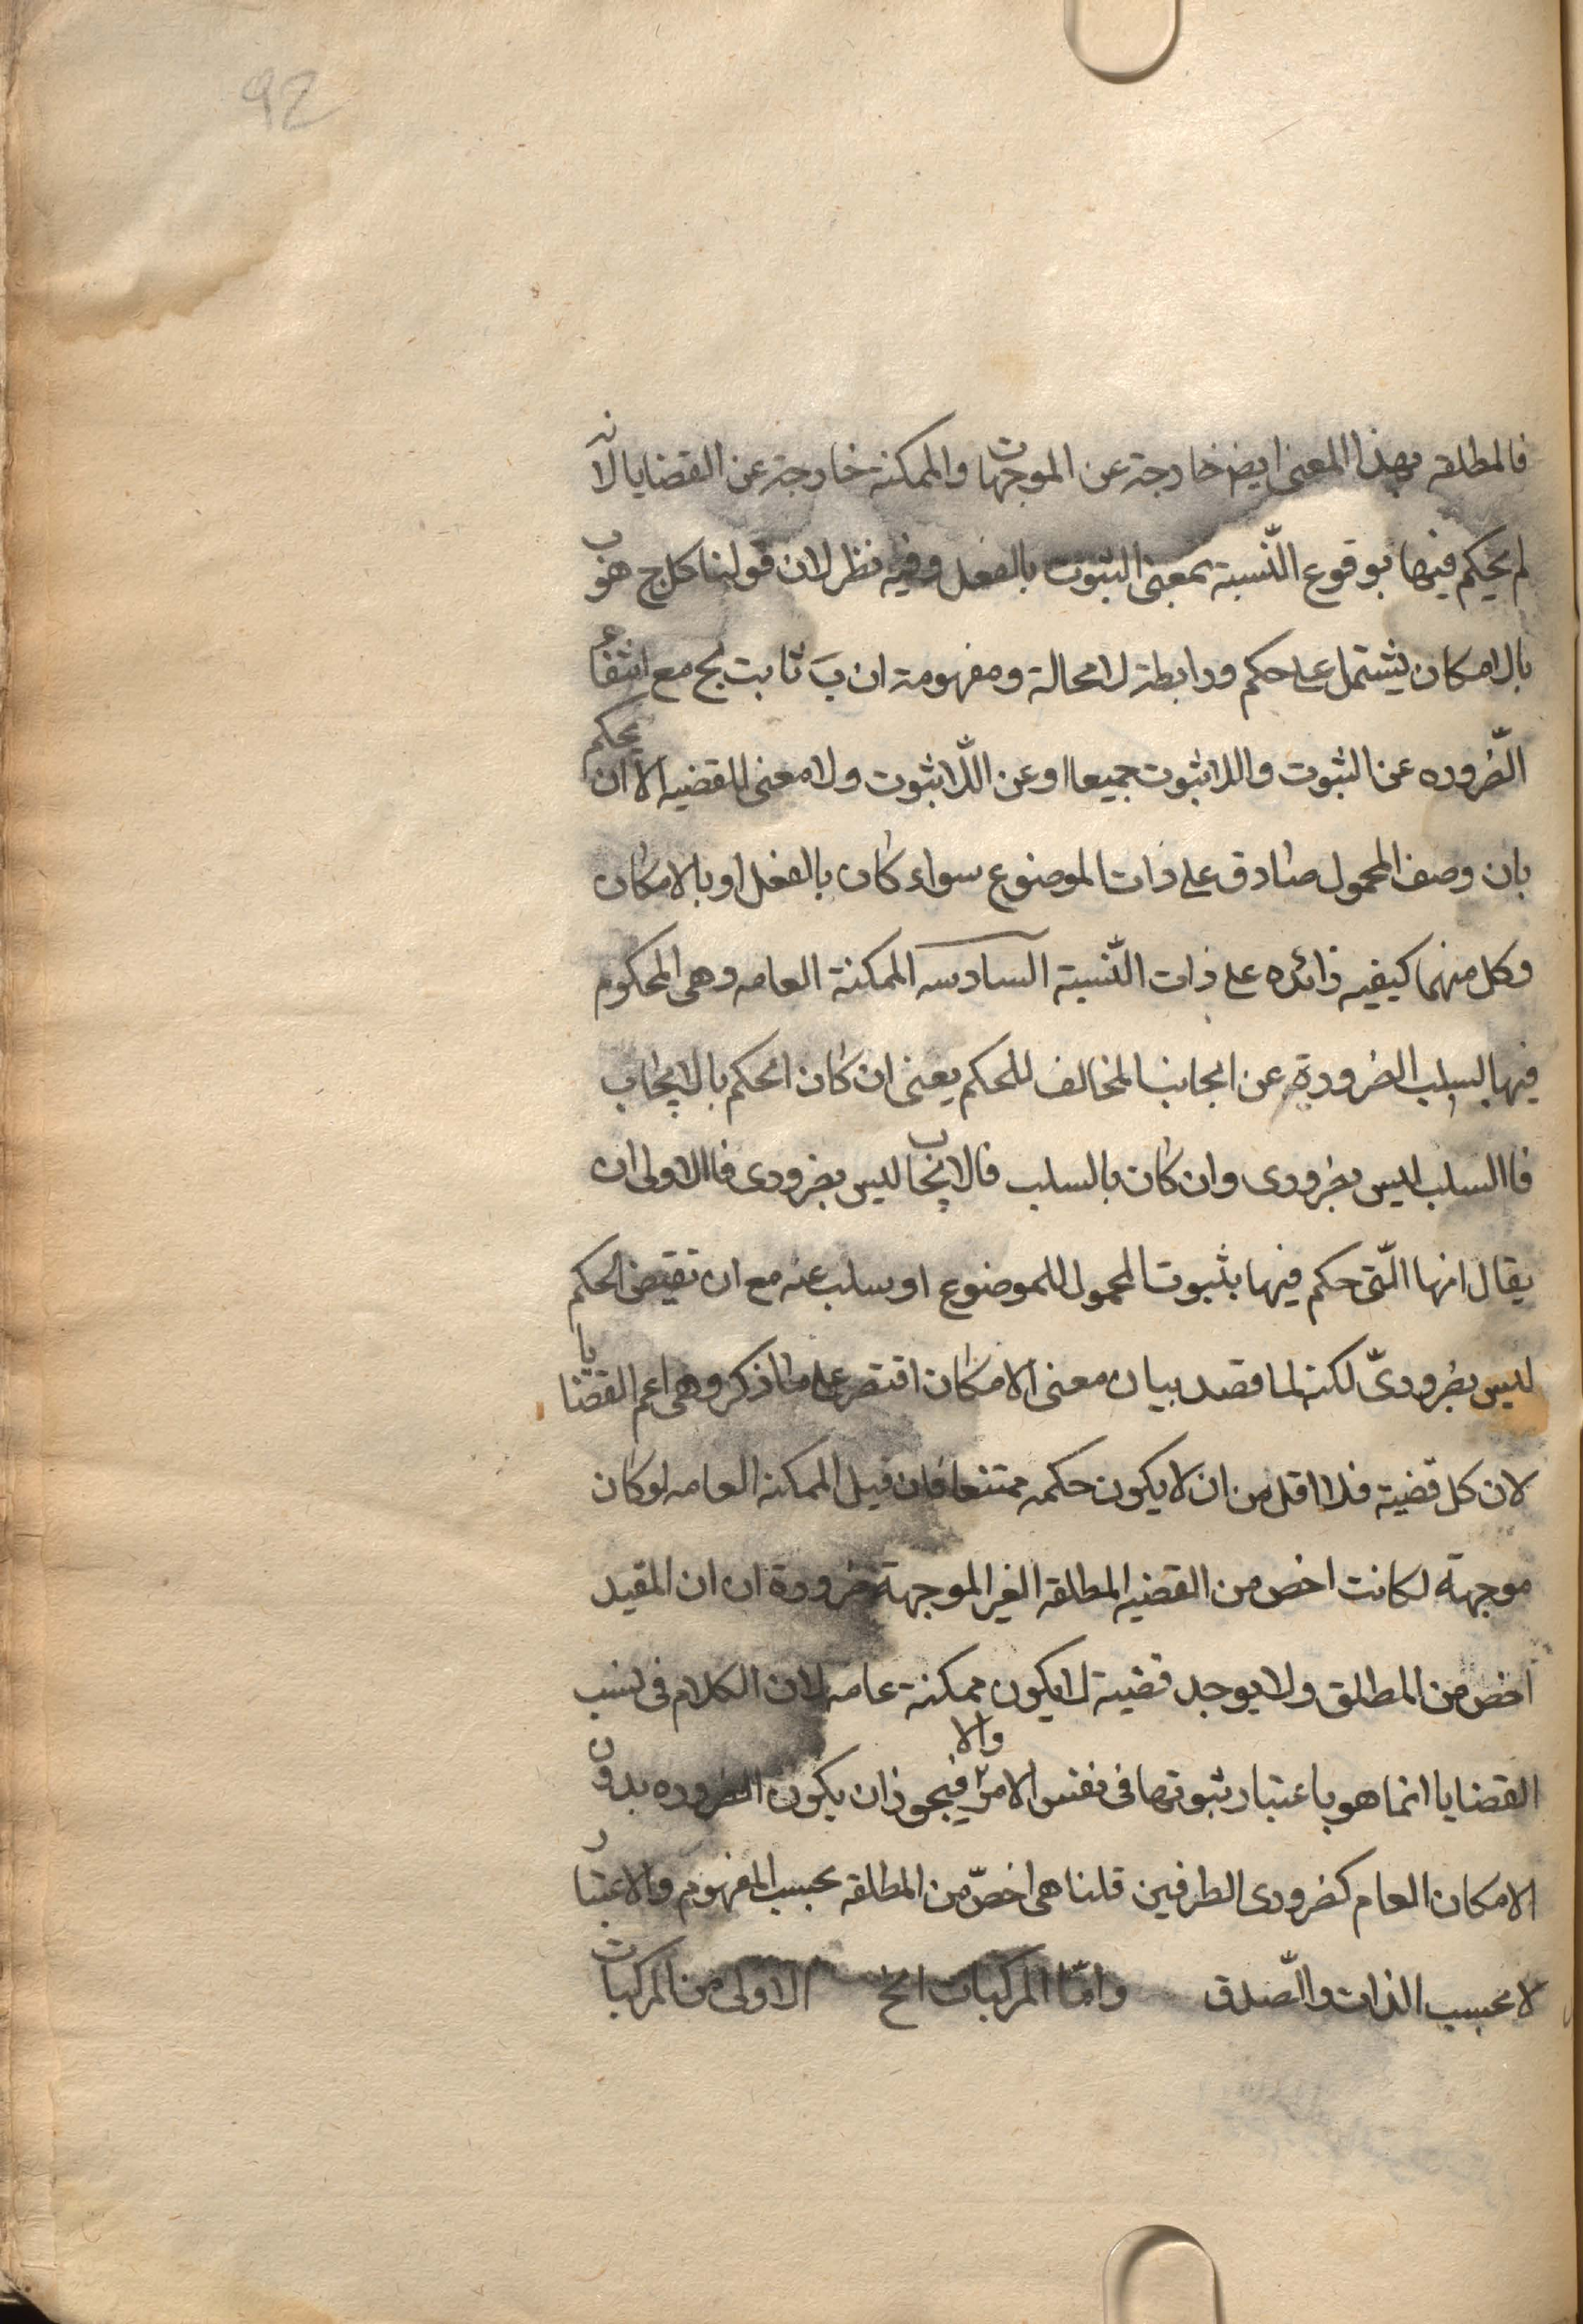 92
فالمطلقه بهذا المعنى ايضا خارجة عن الموجهات والممكنة خارجة عن القضايا لانه
لم يحكم فيها بوقوع النّسبة بمعنى الثبوت بالفعل وفيه نظر لان قولنا كل ج هو ب
بالامكان يشتمل على حكم ورابطة لا محالة ومفهومة ان بَ ثابت لج مع انتفاء
الضّروره عن الثبوت واللاثبوت جميعا او عن اللّاثبوت ولا معنى للقضيه الا ان يحكم
بان وصف المحمول صادق على ذات الموضوع سواء كان بالفعل او بالامكان
وكل منهما كيفيه زائده على ذات النّسبة السادسه الممكنة العامه وهى المحكوم
فيها بسلب الضرورة عن الجانب المخالف للحكم يعنى ان كان الحكم بالايجاب
فاالسلب ليس بضرورى وان كان بالسلب فالايجاب ليس بضرورى فاالاولى ان
يقال انها الّتى حكم فيها بثبوت المحمول للموضوع او سلب عنه مع ان نقيض الحكم
ليس بضرورىّ لكنه لما قصد بيان معنى الامكان اقتصر على ما ذكر وهى اعم القضايا
لان كل قضية فلا اقل من ان لا يكون حكمه ممتنعا فان قيل الممكنه العامه لو كان
موجهة لكانت اخص من القضيه المطلقه الغير الموجهة ضرورة ان ان المقيد
اخص من المطلق ولا يوجد قضية لا يكون ممكنة عامه لان الكلام فى نسب
القضايا انما هو باعتبار ثبوتها فى نفس الامر والا فيجوز ان يكون الضروره بدون
الامكان العام كضرورى الطرفين قلنا هى اخصّ من المطلقه بحسب المفهوم والاعتبار
لا بحسب الذات والصّدق وامّا المركبات الخ الاولى من المركبات